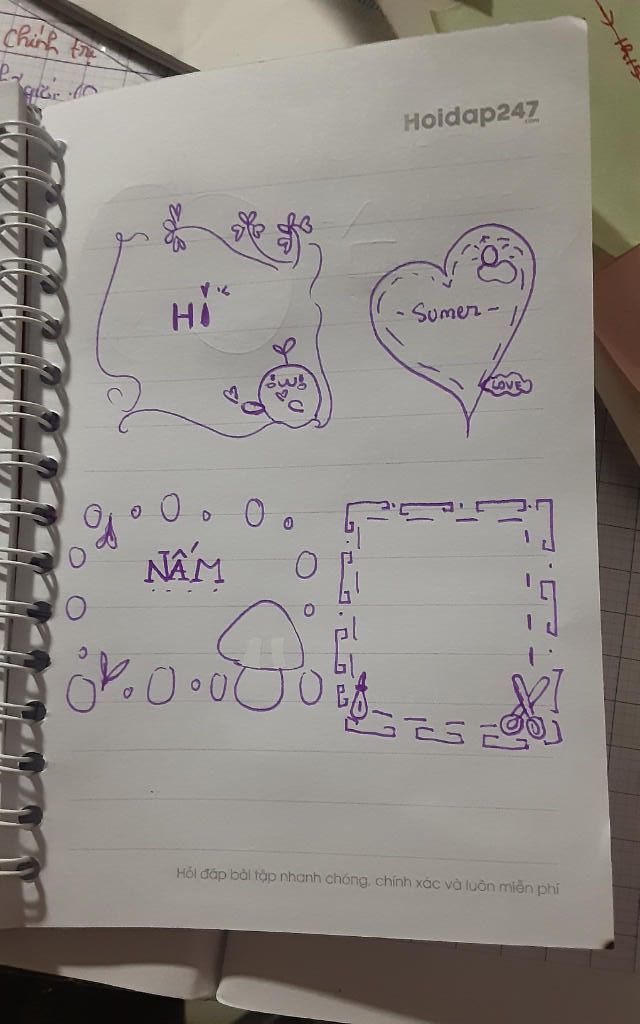 Chính trị
Hoidap247
.com
Hi
- Sumer -
LOVE
NẤM
Hỏi đáp bài tập nhanh chóng, chính xác và luôn miễn phí